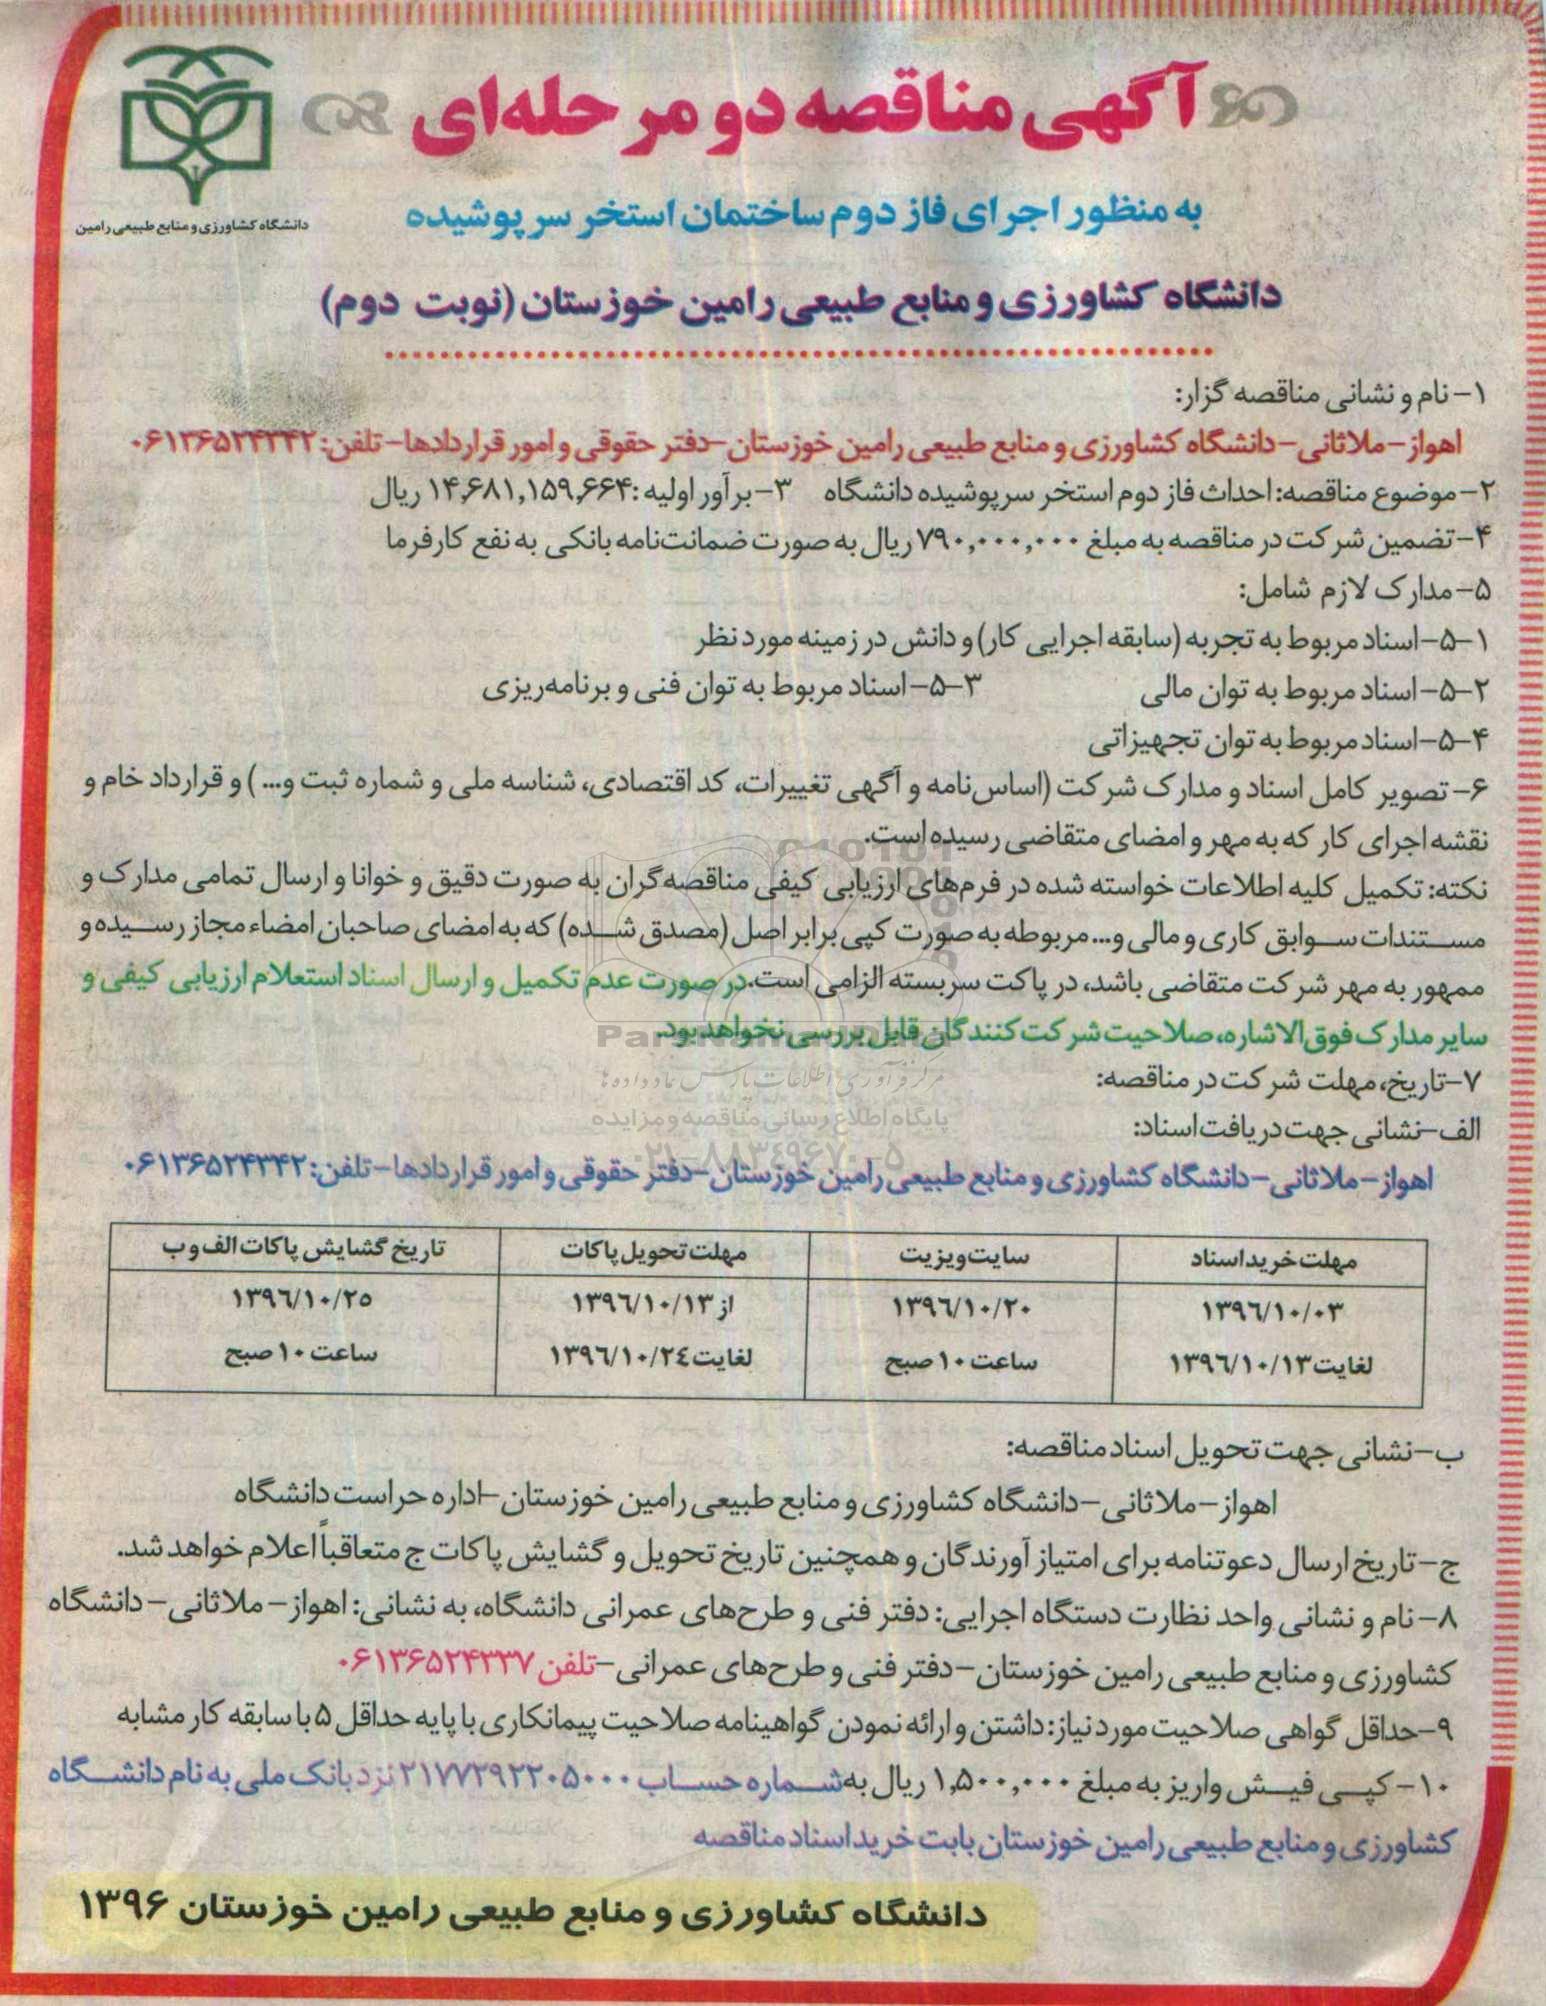 آگهی مناقصه دو مرحله‌ای
دانشگاه کشاورزی و منابع طبیعی رامین
به منظور اجرای فاز دوم ساختمان استخر سرپوشیده
دانشگاه کشاورزی و منابع طبیعی رامین خوزستان (نوبت دوم)
۱- نام و نشانی مناقصه گزار:
اهواز-ملاثانی-دانشگاه کشاورزی و منابع طبیعی رامین خوزستان-دفتر حقوقی و امور قراردادها-تلفن: ۰۶۱۳۶۵۲۴۳۴۲
۲- موضوع مناقصه: احداث فاز دوم استخر سرپوشیده دانشگاه ۳- برآور اولیه: ۱۴,۶۸۱,۱۵۹,۶۶۴ ریال
۴- تضمین شرکت در مناقصه به مبلغ ۷۹۰,۰۰۰,۰۰۰ ریال به صورت ضمانت‌نامه بانکی به نفع کارفرما
۵- مدارک لازم شامل:
۵-۱- اسناد مربوط به تجربه (سابقه اجرایی کار) و دانش در زمینه مورد نظر
۵-۲- اسناد مربوط به توان مالی ۵-۳- اسناد مربوط به توان فنی و برنامه‌ریزی
۵-۴- اسناد مربوط به توان تجهیزاتی
۶- تصویر کامل اسناد و مدارک شرکت (اساس‌نامه و آگهی تغییرات، کد اقتصادی، شناسه ملی و شماره ثبت و...) و قرارداد خام و
نقشه اجرای کار که به مهر و امضای متقاضی رسیده است.
نکته: تکمیل کلیه اطلاعات خواسته شده در فرم‌های ارزیابی کیفی مناقصه‌گران به صورت دقیق و خوانا و ارسال تمامی مدارک و
مستندات سوابق کاری و مالی و... مربوطه به صورت کپی برابر اصل (مصدق شده) که به امضای صاحبان امضاء مجاز رسیده و
ممهور به مهر شرکت متقاضی باشد، در پاکت سربسته الزامی است. در صورت عدم تکمیل و ارسال اسناد استعلام ارزیابی کیفی و
سایر مدارک فوق‌الاشاره، صلاحیت شرکت‌کنندگان قابل بررسی نخواهد بود.
مرکز فرآوری اطلاعات پارس نماد داده ها
۷- تاریخ، مهلت شرکت در مناقصه:
پایگاه اطلاع رسانی مناقصه و مزایده
الف-نشانی جهت دریافت اسناد:
۰۲۱-۸۸۳۴۹۶۷۰-۵
اهواز-ملاثانی-دانشگاه کشاورزی و منابع طبیعی رامین خوزستان-دفتر حقوقی و امور قراردادها-تلفن: ۰۶۱۳۶۵۲۴۳۴۲
مهلت خرید اسناد سایت ویزیت مهلت تحویل پاکات تاریخ گشایش پاکات الف و ب
۱۳۹۶/۱۰/۰۳ ۱۳۹۶/۱۰/۲۰ از ۱۳۹۶/۱۰/۱۳ ۱۳۹۶/۱۰/۲۵
لغایت ۱۳۹۶/۱۰/۱۳ ساعت ۱۰ صبح لغایت ۱۳۹۶/۱۰/۲۴ ساعت ۱۰ صبح
ب-نشانی جهت تحویل اسناد مناقصه:
اهواز-ملاثانی-دانشگاه کشاورزی و منابع طبیعی رامین خوزستان-اداره حراست دانشگاه
ج-تاریخ ارسال دعوتنامه برای امتیاز آورندگان و همچنین تاریخ تحویل و گشایش پاکات ج متعاقباً اعلام خواهد شد.
۸- نام و نشانی واحد نظارت دستگاه اجرایی: دفتر فنی و طرح‌های عمرانی دانشگاه، به نشانی: اهواز-ملاثانی-دانشگاه
کشاورزی و منابع طبیعی رامین خوزستان-دفتر فنی و طرح‌های عمرانی-تلفن ۰۶۱۳۶۵۲۴۳۳۷
۹-حداقل گواهی صلاحیت مورد نیاز: داشتن و ارائه نمودن گواهینامه صلاحیت پیمانکاری با پایه حداقل ۵ با سابقه کار مشابه
۱۰- کپی فیش واریز به مبلغ ۱,۵۰۰,۰۰۰ ریال به شماره حساب ۲۱۷۷۲۹۲۲۰۵۰۰۰ نزد بانک ملی به نام دانشگاه
کشاورزی و منابع طبیعی رامین خوزستان بابت خرید اسناد مناقصه
دانشگاه کشاورزی و منابع طبیعی رامین خوزستان ۱۳۹۶